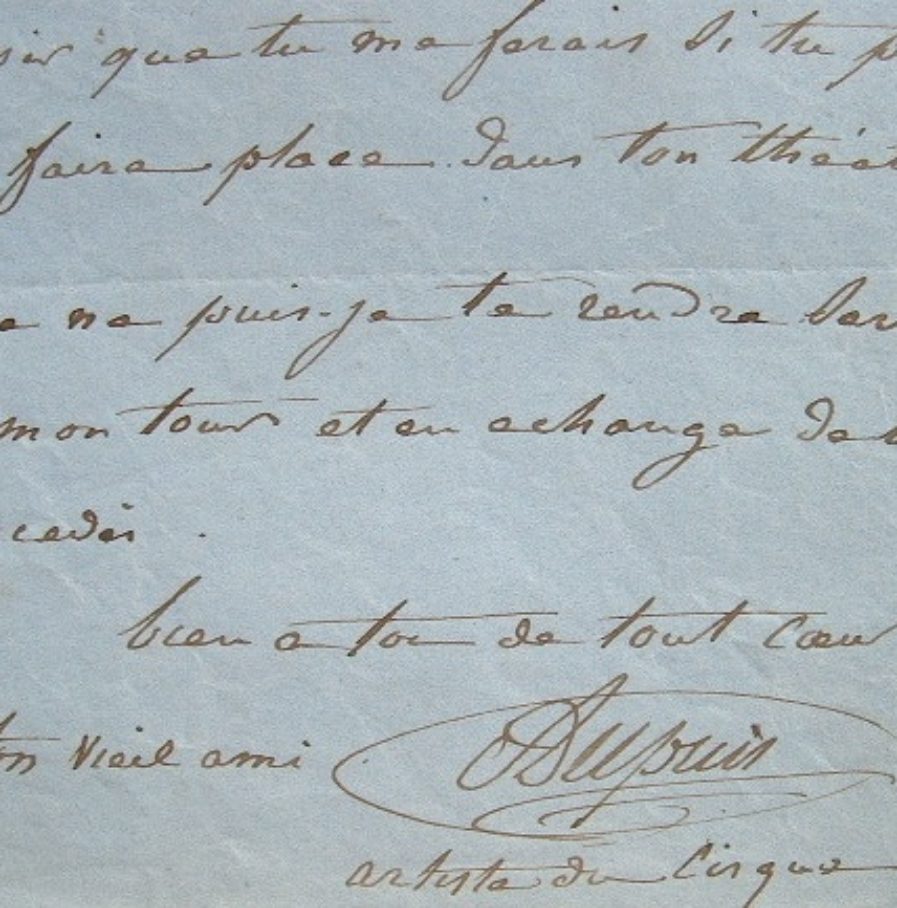 sir que tu me ferais si tu p
faire place dans ton théat
e ne puis-je te rendre ser
mon tour et en echange de
cedés.
bien a toi de tout cœur
ton vieil ami Dupuis
artiste du Cirque